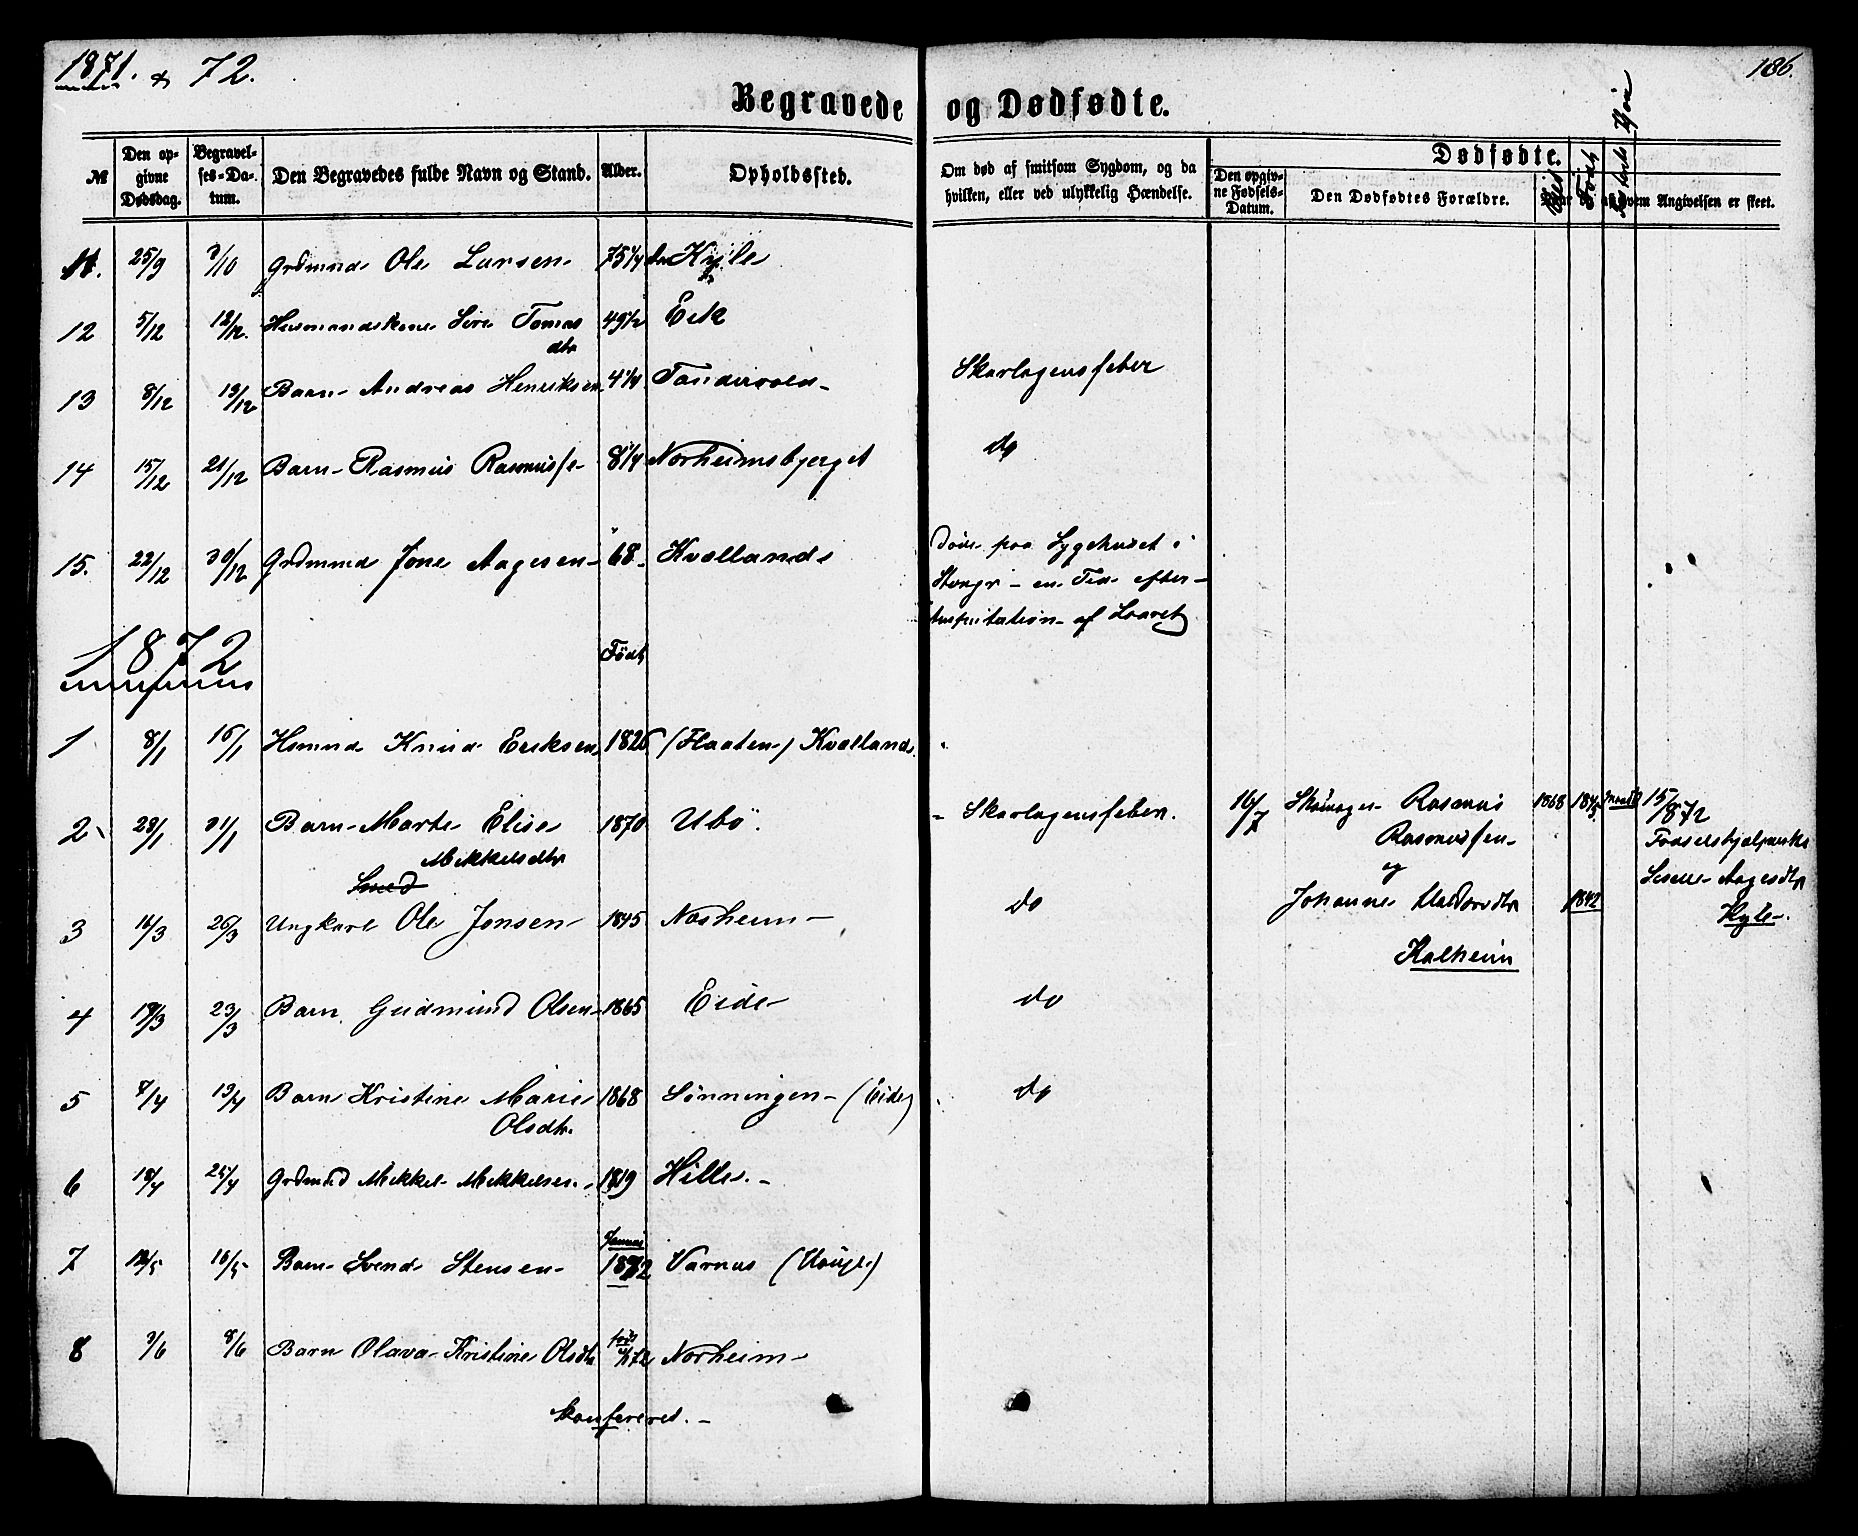 1871. & 72.
186.
Begravede og Dødfødte.
№
Den opgivne Dødsdag.
Begravelses-Datum.
Den Begravedes fulde Navn og Stand.
Alder.
Opholdssted.
Om død af smitsom Sygdom, og da hvilken, eller ved ulykkelig Hændelse.
Dødfødte.
Den opgivne Fødsels-Datum.
Den Dødfødtes Forældre.
af hvem Angivelsen er skeet.
Født
Kjøn
11. 25/9 3/10 Grdmnd Ole Larsen 75 1/4 Hyle
12 5/12 12/12. Husmandskone Siri Tomas 49 1/2 Eik
dtr
13 8/12 13/12 Barn Andreas Henriksen 4 1/4 Tondervold Skarlagensfeber
14 15/12 21/12 Barn Rasmus Rasmussen 8 1/4 Norheimsbjerget do
15. 22/12 30/12 Grdmnd Jone Aagesen 68. Kvalland
Døde paa Sygehuset i
Stvngr – en Tid efter
Amputation af Laaret
1872
Født
1 8/1 16/1 Hsmnd Knud Eriksen 1826 (Flaaten) Kvalland
2 28/1 31/1 Barn Marte Elise 1870 Ubø. Skarlagensfeber.
Mikkelsdtr
16/7 Skomager Rasmus
Rasmussen
og
Johanne Haldorsdtr
Kalheim
1868 1845 1842
15/7 1872
Fødselshjælperske
Siselle Aagesdtr
Hyle
3 16/3 26/3 Ungkarl Ole Jonsen 1845 Norheim do
4 19/3 23/3 Barn Gudmund Olsen 1865 Eide do
5 8/4 13/4 Barn Kristine Marie 1868 Lønningen (Eide) do
Olsdtr.
6 18/4 25/4 Grdmnd Mikkel Mikkelsen 1819 Hille
7 12/5 16/5 Barn Svend Stensen Januar 1872 Varnus
8 3/6 8/6 Barn Olava Kristine Olsdtr født 72 Norheim
Konfereret.